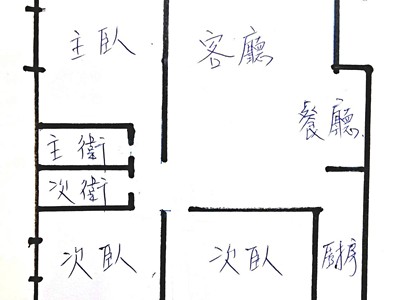 主臥
客廳
餐廳
主衛
次衛
次臥
次臥
廚房